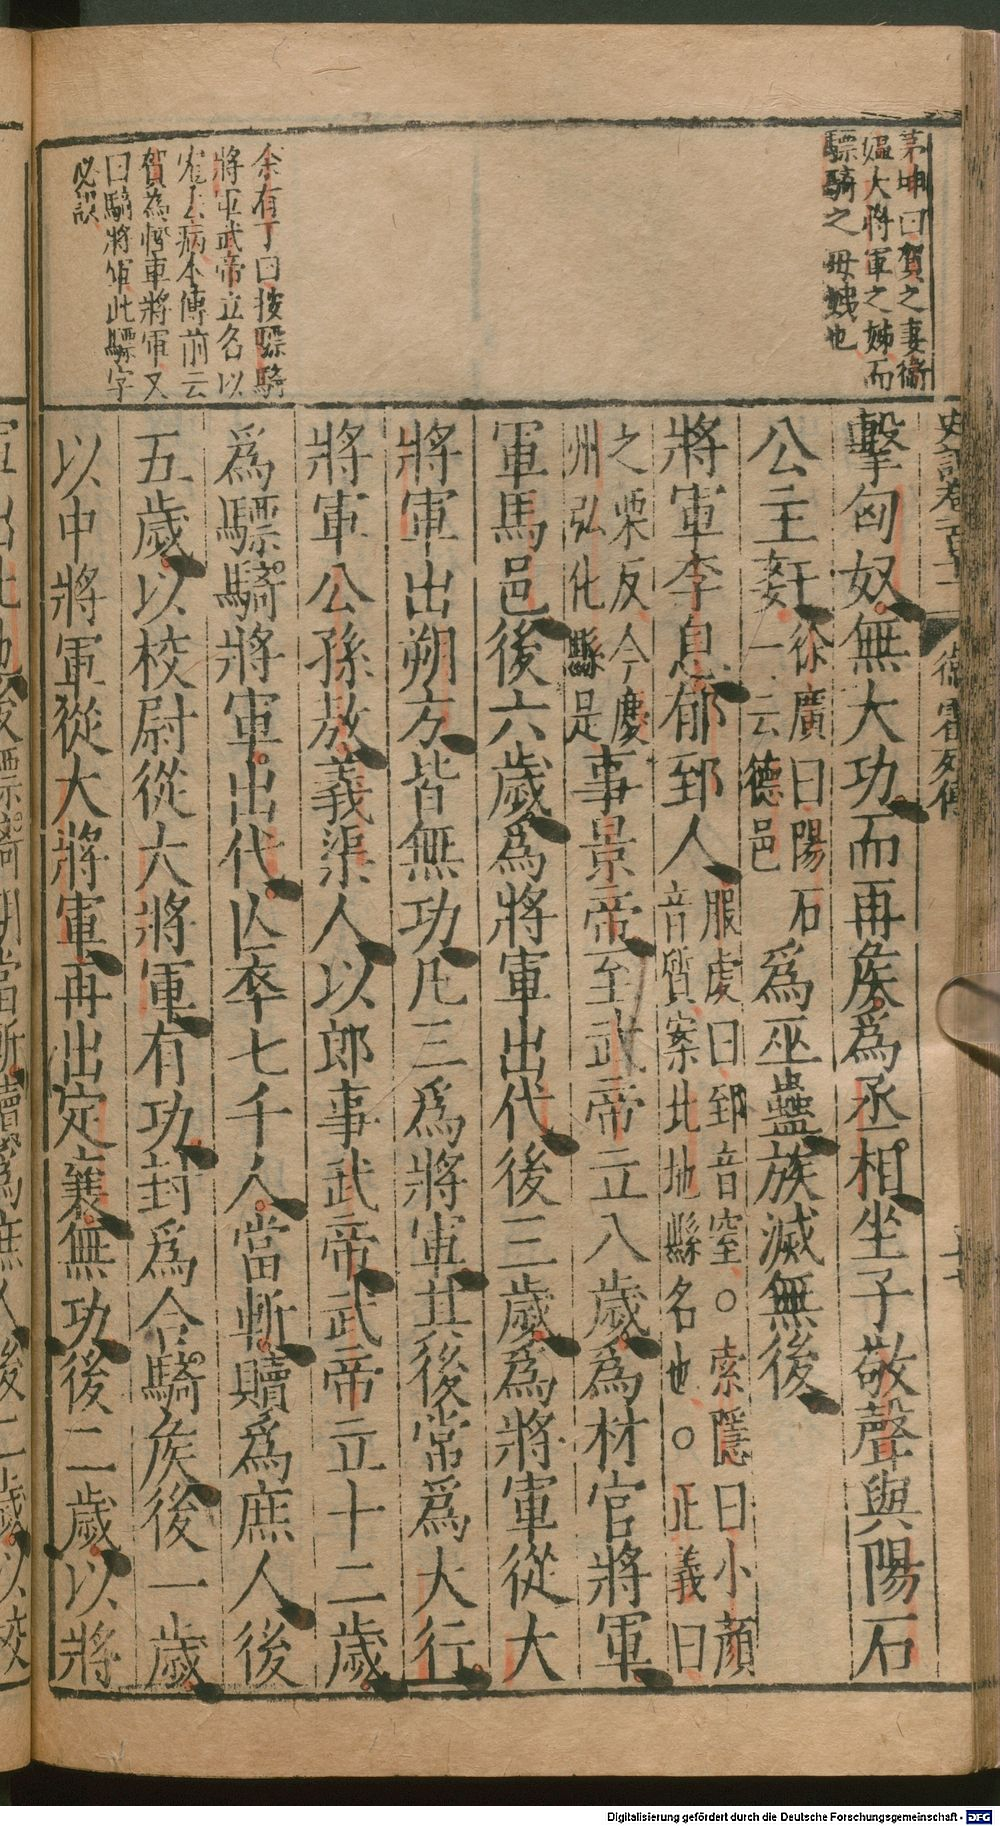 茅坤曰賀之妻衛
媼大將軍之姊而
驃騎之母姨也
余有丁曰按驃騎
將軍武帝立名以
寵去病本傳前云
賀為輕車將軍又
曰騎將軍此驃字
必誤
擊匈奴無大功而再矦爲丞相坐子敬聲與陽石
公主姦徐廣曰陽石一云德邑爲巫蠱族滅無後
將軍李息郁郅人服虔曰郅音窒○索隱曰小顏音質案北地縣名也○正義曰
之栗反今慶州弘化縣是事景帝至武帝立八歲爲材官將軍
軍馬邑後六歲爲將軍出代後三歲爲將軍從大
將軍出朔方皆無功凡三爲將軍其後常爲大行
將軍公孫敖義渠人以郎事武帝武帝立十二歲
爲驃騎將軍出代亾卒七千人當斬贖爲庶人後
五歲以校尉從大將軍有功封爲合騎矦後一歲
以中將軍從大將軍再出定襄無功後二歲以將
史記卷一百十一
衛霍列傳
Digitalisierung gefördert durch die Deutsche Forschungsgemeinschaft - DFG